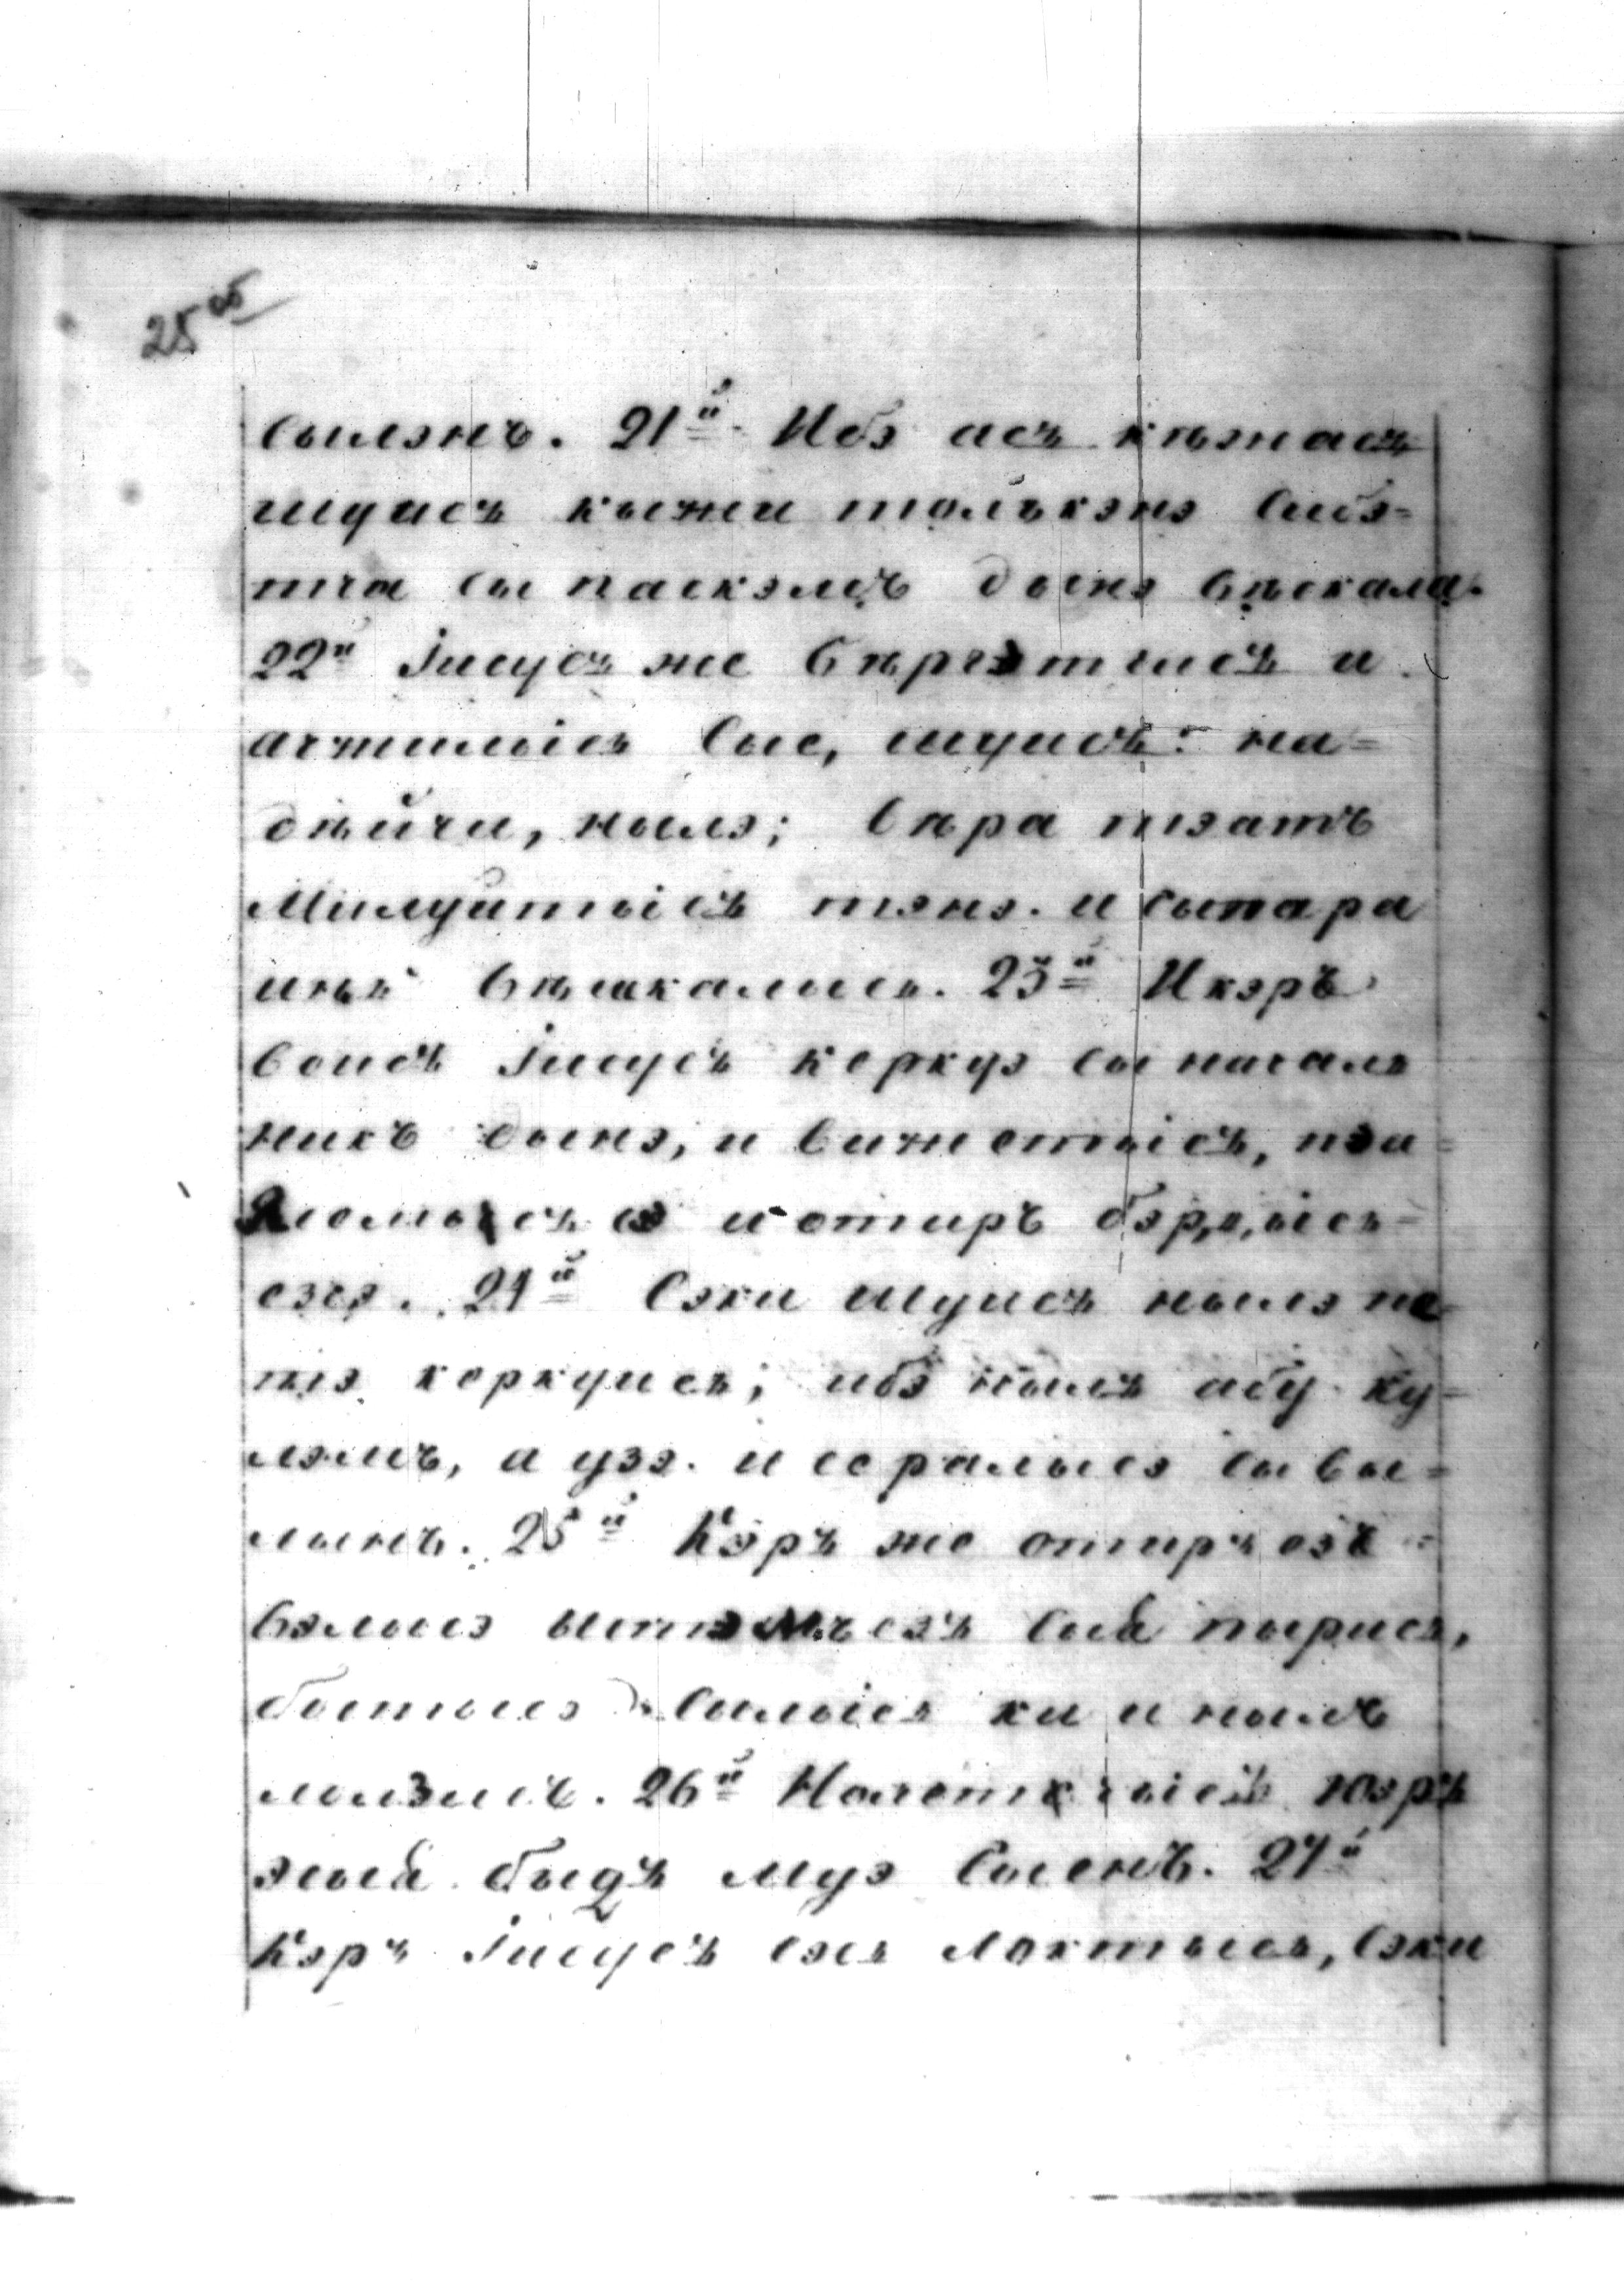 25 об
сылэнъ. 21й Ибэ асъ кѣжасъ
шуисъ кыжи толькэнэ сибэ-
тча сы паскэмъ дынэ вѣскала.
22й Іисусъ же бѣргэтчисъ и
ачжилысъ сые, шуисъ: на-
дѣйчи, нылэ; вѣра тэатъ
милуйтысъ тэнэ. и сытара
инька вѣшкалысъ. 23й Икэръ
воисъ Іисусъ керкуэ сы началь
никъ дынэ, и вижетысъ,
и отиръ бэрдысь-
сэзэ. 24й Сэки шуисъ нылэ пе-
тэ керкуись; ибэ нылъ абу ку-
лэмъ, а узэ. и сералысэ сы вы-
лынъ. 25й Кэръ же отиръ сэзъ
вэлысэ сыа пырисъ,
босьтысэ силысь ки и нылъ
молзисъ. 26й юэръ
эсыа быдъ муэ сыенъ. 27й
Кэръ Іисусъ сэсь локтысь, сэки